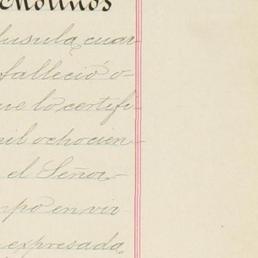 Molinos
usula cuar
falleció o-
ue lo certifi
mil ochocien
el Señor
mpo en vir
expresada